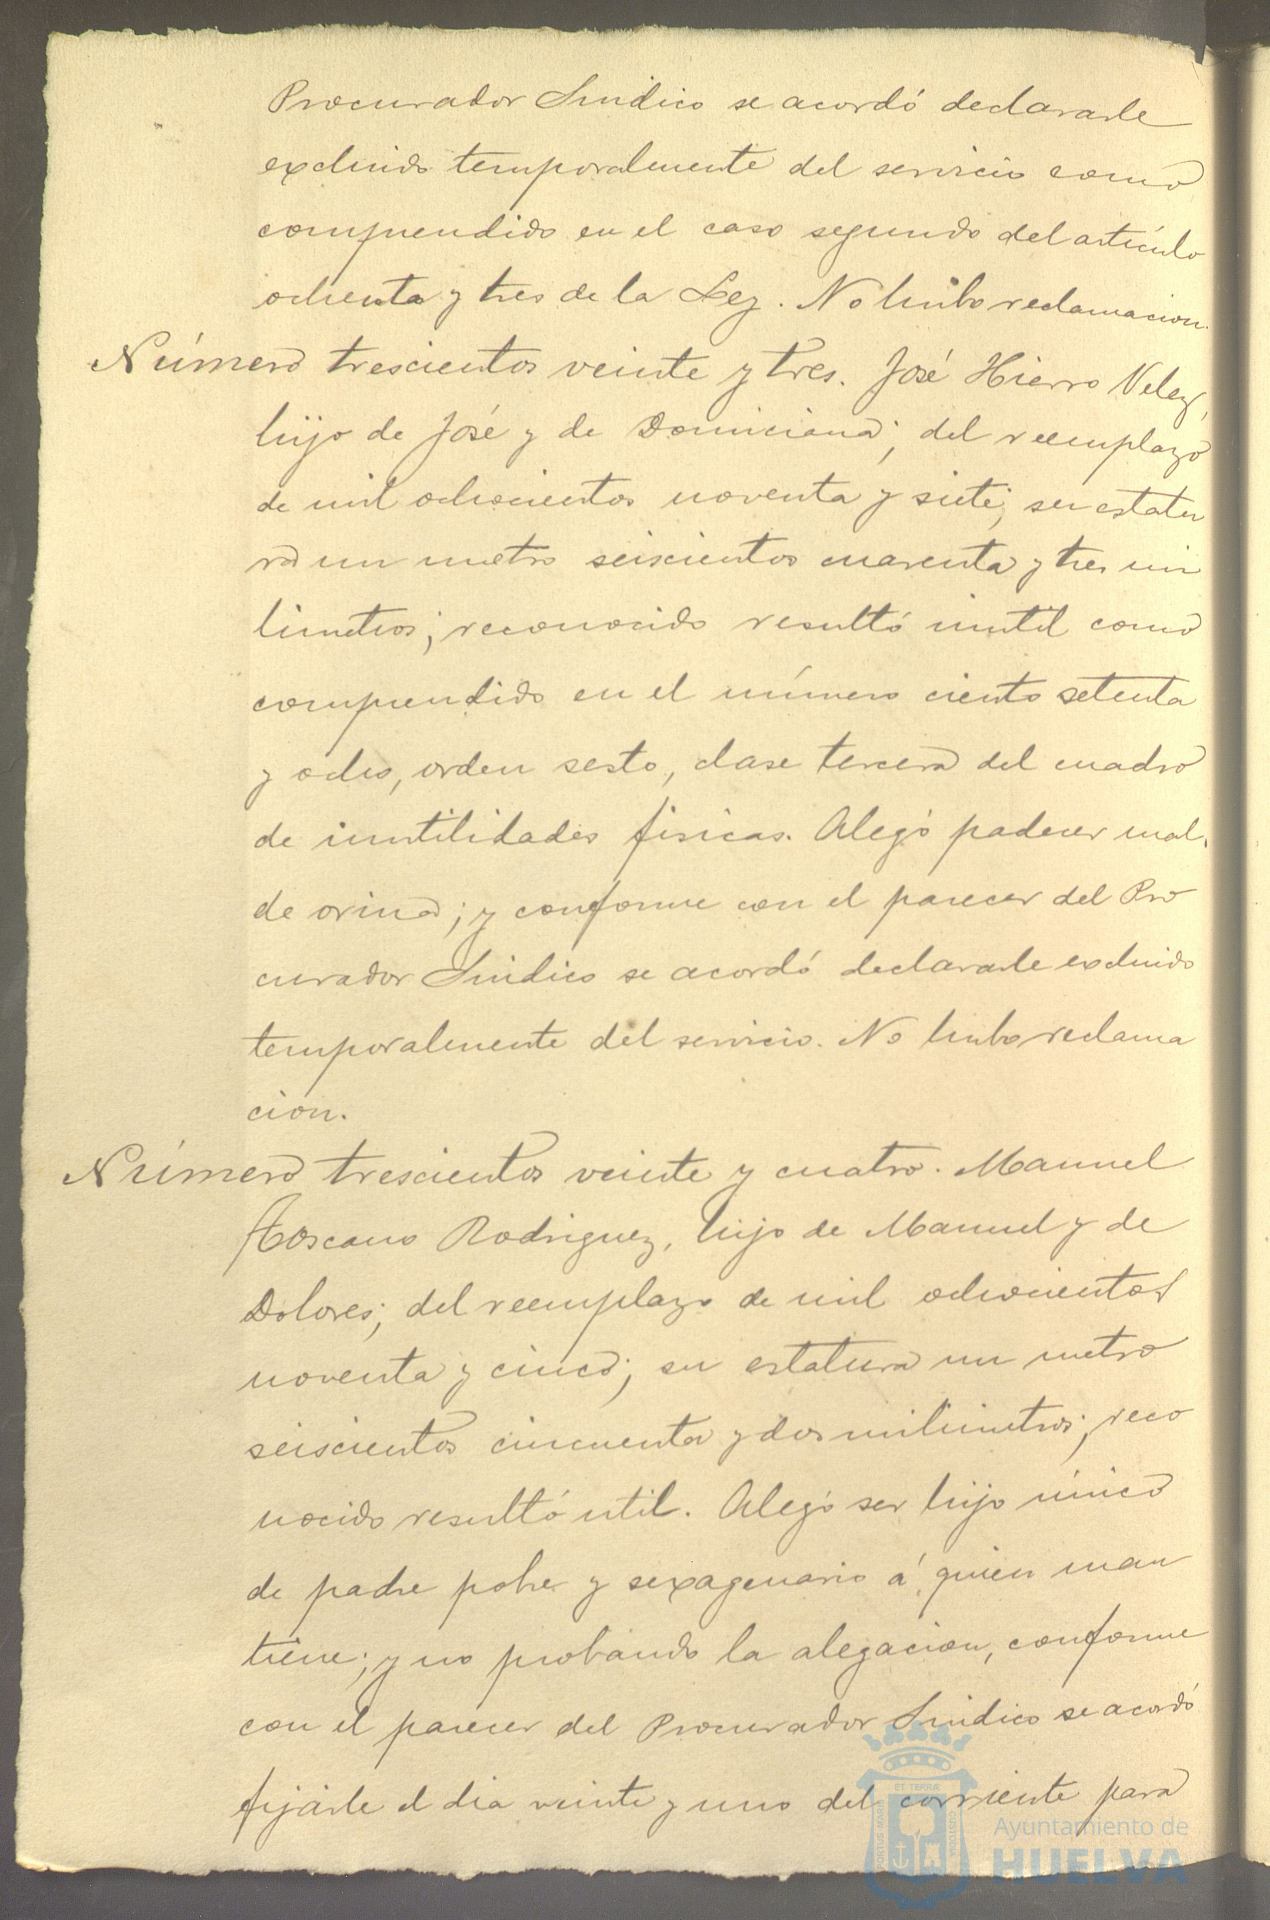 Procurador Sindico se acordó declararle
excluido temporalmente del servicio como
comprendido en el caso segundo del artículo
ochenta y tres de la Ley. No hubo reclamacion.
Número trescientos veinte y tres. José Hierro Velez,
hijo de José y de Domiciana; del reemplazo
de mil ochocientos noventa y siete; su estatu
ra un metro seiscientos cuarenta y tres mi
limetros; reconocido resultó inutil como
comprendido en el número ciento setenta
y ocho, orden sesto, clase tercera del cuadro
de inutilidades fisicas. Alegó padecer mal
de orina; y conforme con el parecer del Pro
curador Sindico se acordó declararle excluido
temporalmente del servicio. No hubo reclama
cion.
Número trescientos veinte y cuatro. Manuel
Toscano Rodriguez, hijo de Manuel y de
Dolores; del reemplazo de mil ochocientos
noventa y cinco; su estatura un metro
seiscientos cincuenta y dos milimetros; reco
nocido resultó util. Alegó ser hijo único
de padre pobre y sexagenario á quien man
tiene; y no probando la alegacion, conforme
con el parecer del Procurador Sindico se acordó
fijarle el dia veinte y uno del corriente para
Ayuntamiento de
HUELVA